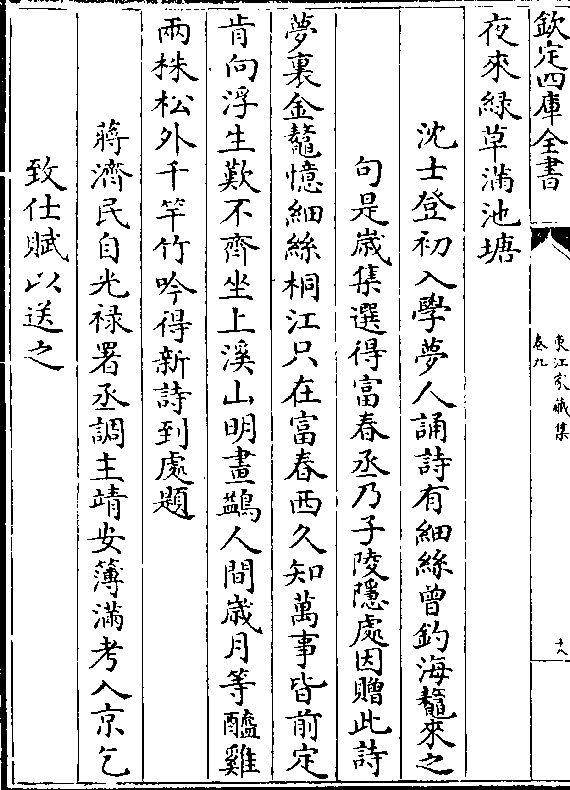 欽定四庫全書
東江家藏集
卷九
十八
夜來緑草滿池塘
沈士登初入學夢人誦詩有細絲曾釣海鼇來之
句是歲集選得富春丞乃子陵隱處因贈此詩
夢裏金鼇憶細絲桐江只在富春西久知萬事皆前定
肯向浮生歎不齊坐上溪山明畫鷁人間歲月等醯雞
兩株松外千竿竹吟得新詩到處題
蔣濟民自光禄署丞調主靖安薄滿考入京乞
致仕賦以送之